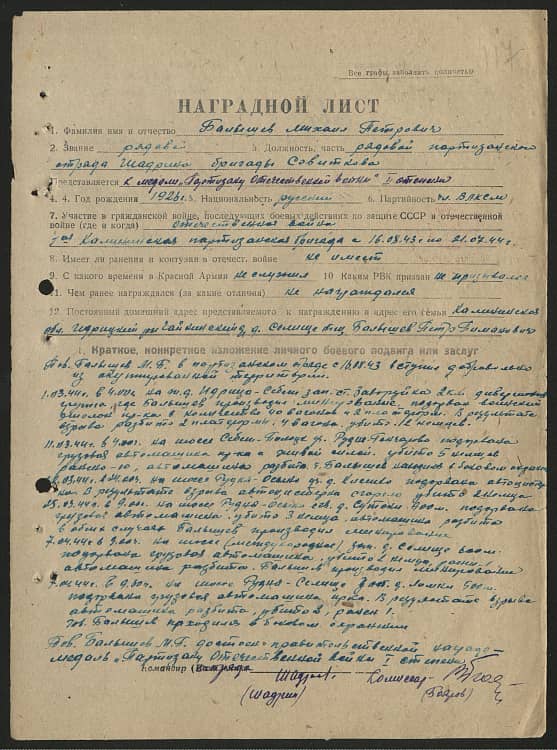 Все графы заполнять полностью
НАГРАДНОЙ ЛИСТ
1. Фамилия имя и отчество Балышев Михаил Петрович
2. Звание рядовой 3. Должность, часть рядовой партизанского
отряда Шадрина бригады
Представляется к медали „Партизану Отечественной войны" II степени
4. 4. Год рождения 1926 г. 5. Национальность русский 6. Партийность чл. ВЛКСМ
7. Участие в гражданской войне, последующих боевых действиях по защите СССР и отечественной
войне (где и когда) отечественная война
1-ая Калининская партизанская бригада с 16.08.43 г по 21.07.44 г.
8. Имеет ли ранения и контузии в отечест. войне не имеет
9. С какого времени в Красной Армии не служил 10 Каким РВК призван не призывался
11. Чем ранее награждался (за какие отличия) не награждался
12. Постоянный домашний адрес представляемого к награждению и адрес его семьи Калининская
обл. Идрицкий д. Селище отец Балышев Петр
I. Краткое, конкретное изложение личного боевого подвига или заслуг
Тов. Балышев М.П. в партизанском отряде с 16.08.43 вступил добровольно
из оккупированной территории.
1.03.44 г. в на ж.д. Идрица-Себеж зап. ст. Заваруйка 2 км. диверсионной
группой где Балышев производил минирование, подорван воинский
эшелон пр-ка в количестве 40 вагонов и 2 платформ. В результате
взрыва разбито 2 платформы, 4 вагона, убито 12 немцев.
11.03.44 г. в на шоссе Себеж-Полоцк подорвана
грузовая автомашина пр-ка с живой силой. убито 5 немцев
ранено 10, автомашина разбита. т. Балышев находился в боковом охранении
03.44 г. на шоссе Рудня-Осыно подорвана автоцистерна
В результате взрыва автоцистерна сгорела убито 2 немца
03.44 г. на шоссе Рудня-Осыно подорвана
грузовая автомашина убито 3 немца, автомашина разбита
в обоих случаях Балышев производил минирование
7.04.44 г. в на шоссе (международное) зап. д. Селище 600 м.
подорвана грузовая автомашина, убито 2 немца
автомашина разбита. Балышев производил минирование
04.44 г. в на шоссе Рудня-Селище 500 м.
подорвана грузовая автомашина пр-ка. В результате взрыва
автомашина разбита, убито 2, ранен 1.
Тов. Балышев находился в боковом охранении
Тов. Балышев М.П. достоен правительственной награды
медаль „Партизану Отечественной войны" степени
Командир Комиссар
(Шадрин)